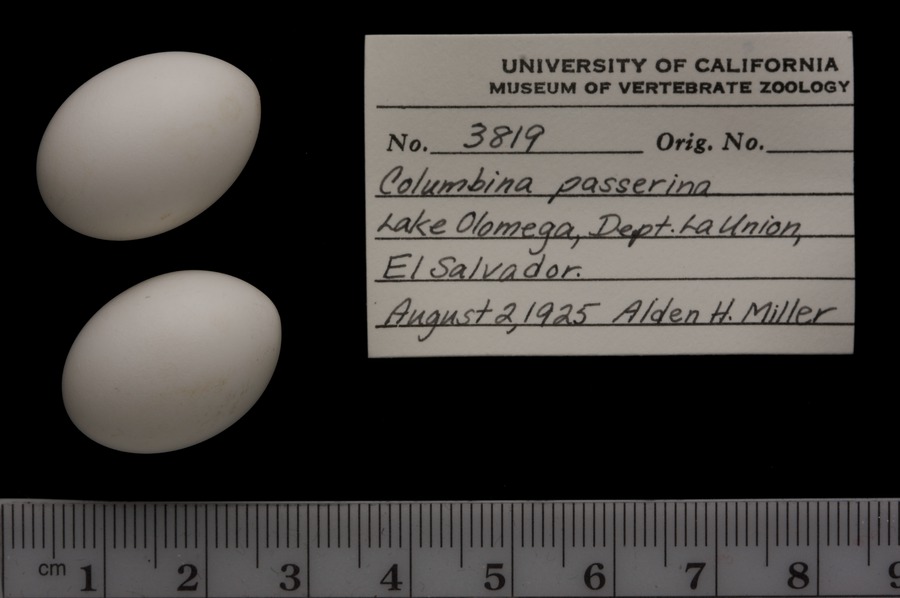 UNIVERSITY OF CALIFORNIA
MUSEUM OF VERTEBRATE ZOOLOGY
No. 3819 Orig. No.
Columbina passerina
Lake Olomega, Dept. La Union,
El Salvador.
August 2, 1925 Alden H. Miller
cm 1 2 3 4 5 6 7 8 9